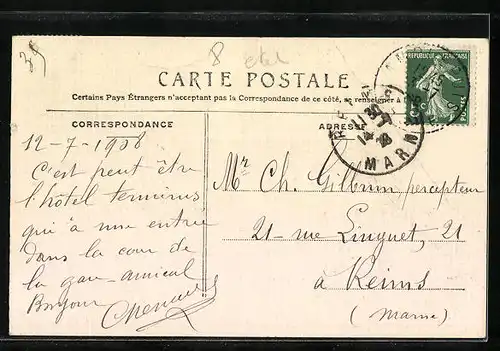 39
8 etel
CARTE POSTALE
Certains Pays Étrangers n'acceptant pas la Correspondance de ce côté, se renseigner à
CORRESPONDANCE
ADRESSE
RÉPUBLIQUE FRANÇAISE
POSTES
MARNE
12-7-1908
C'est peut être
l'hôtel terminus
qui a une entrée
dans la cour de
la gare - amical
Bonjour
Mr. Ch. percepteur
21 - rue Linguet, 21
à Reims
(Marne)